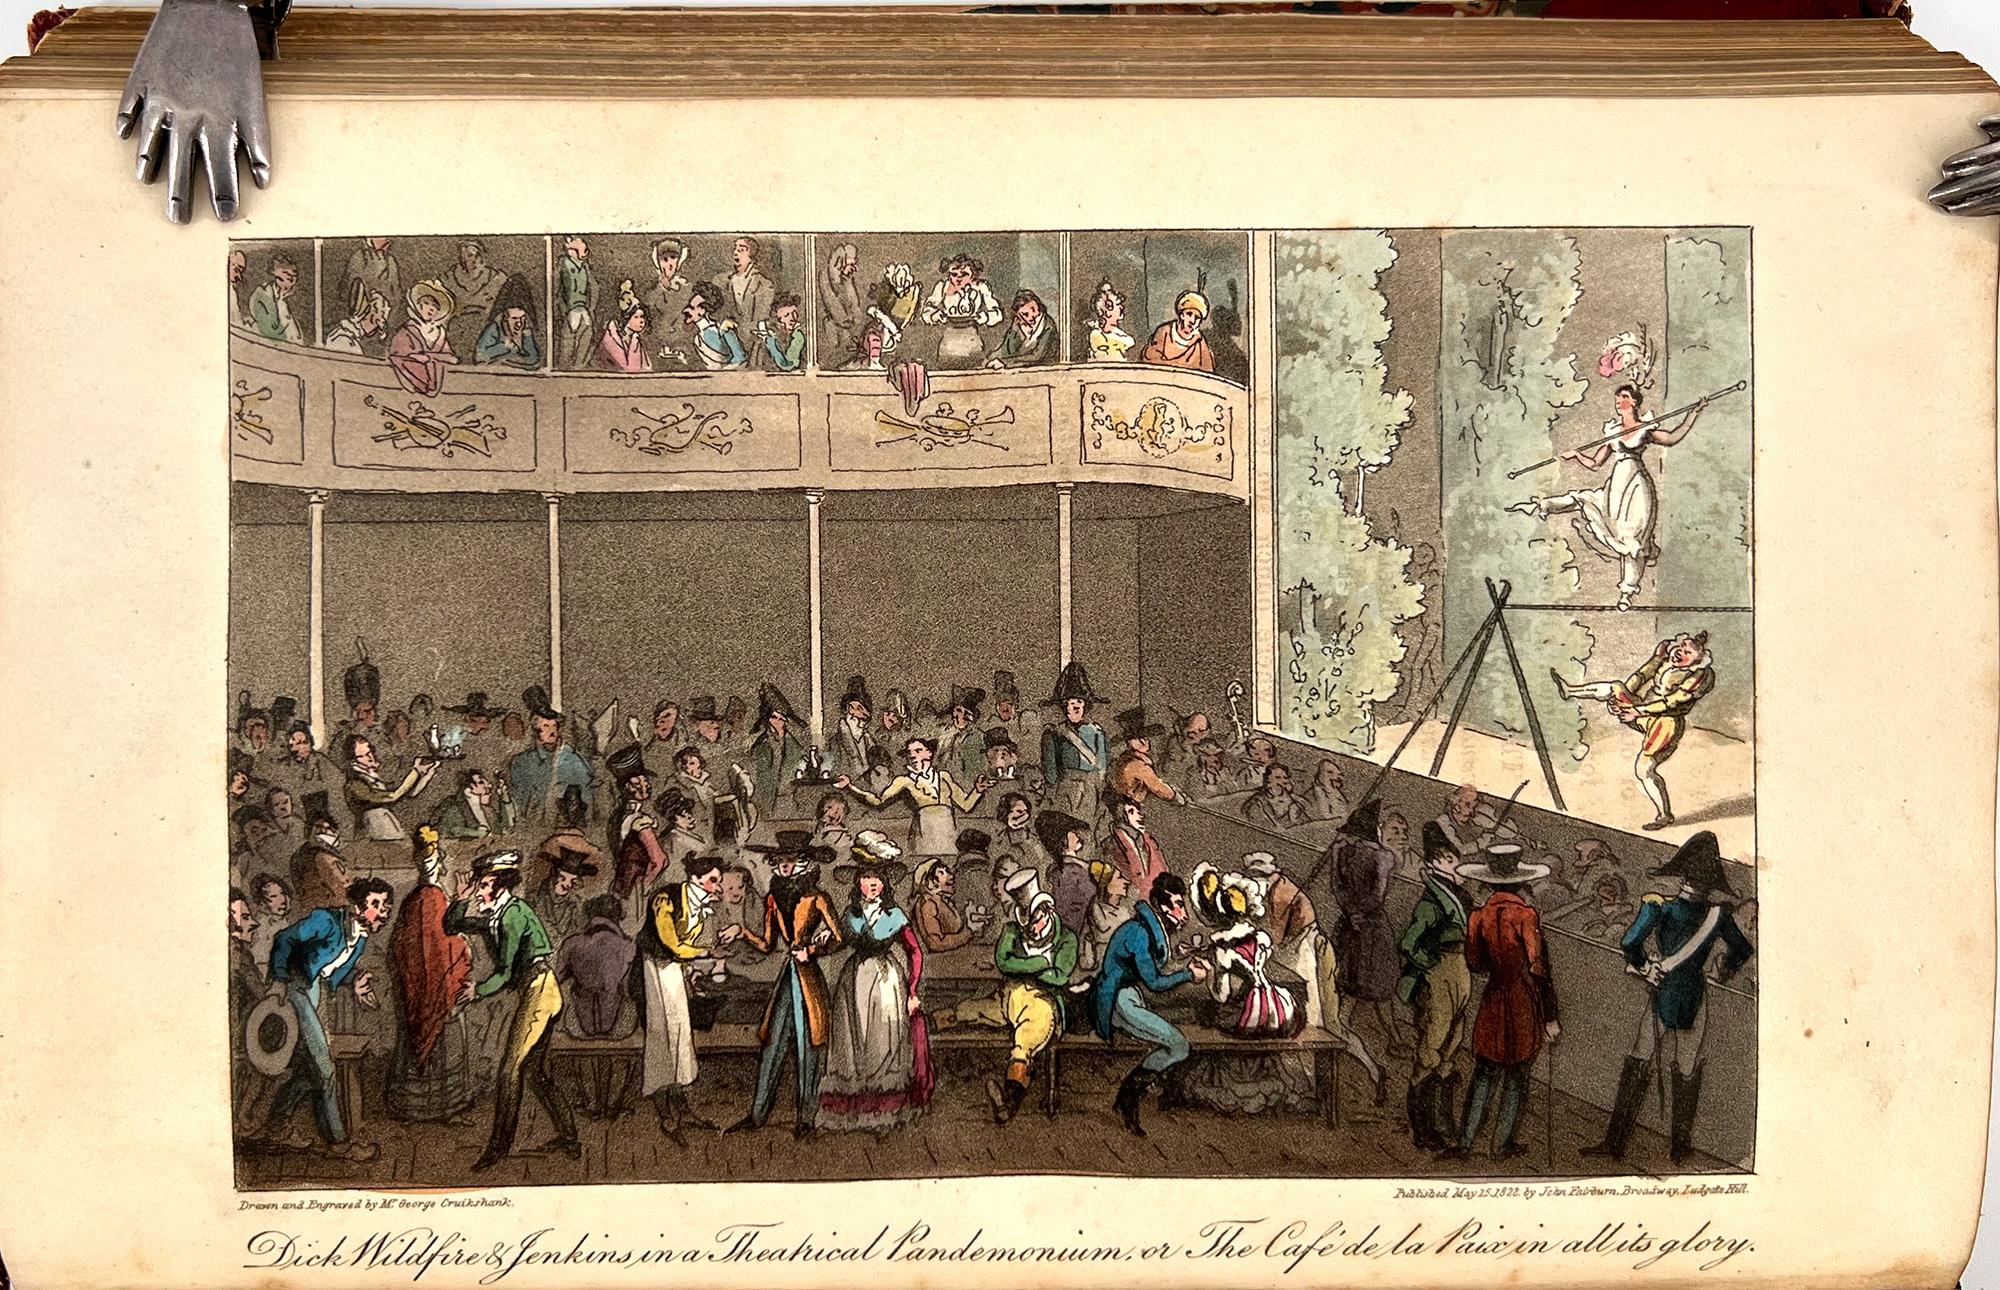 Drawn and Engraved by Mr. George Cruikshank.
Published May 15. 1822. by John Fairburn, Broadway, Ludgate Hill.
Dick Wildfire & Jenkins in a Theatrical Pandemonium, or The Café de la Paix in all its glory.